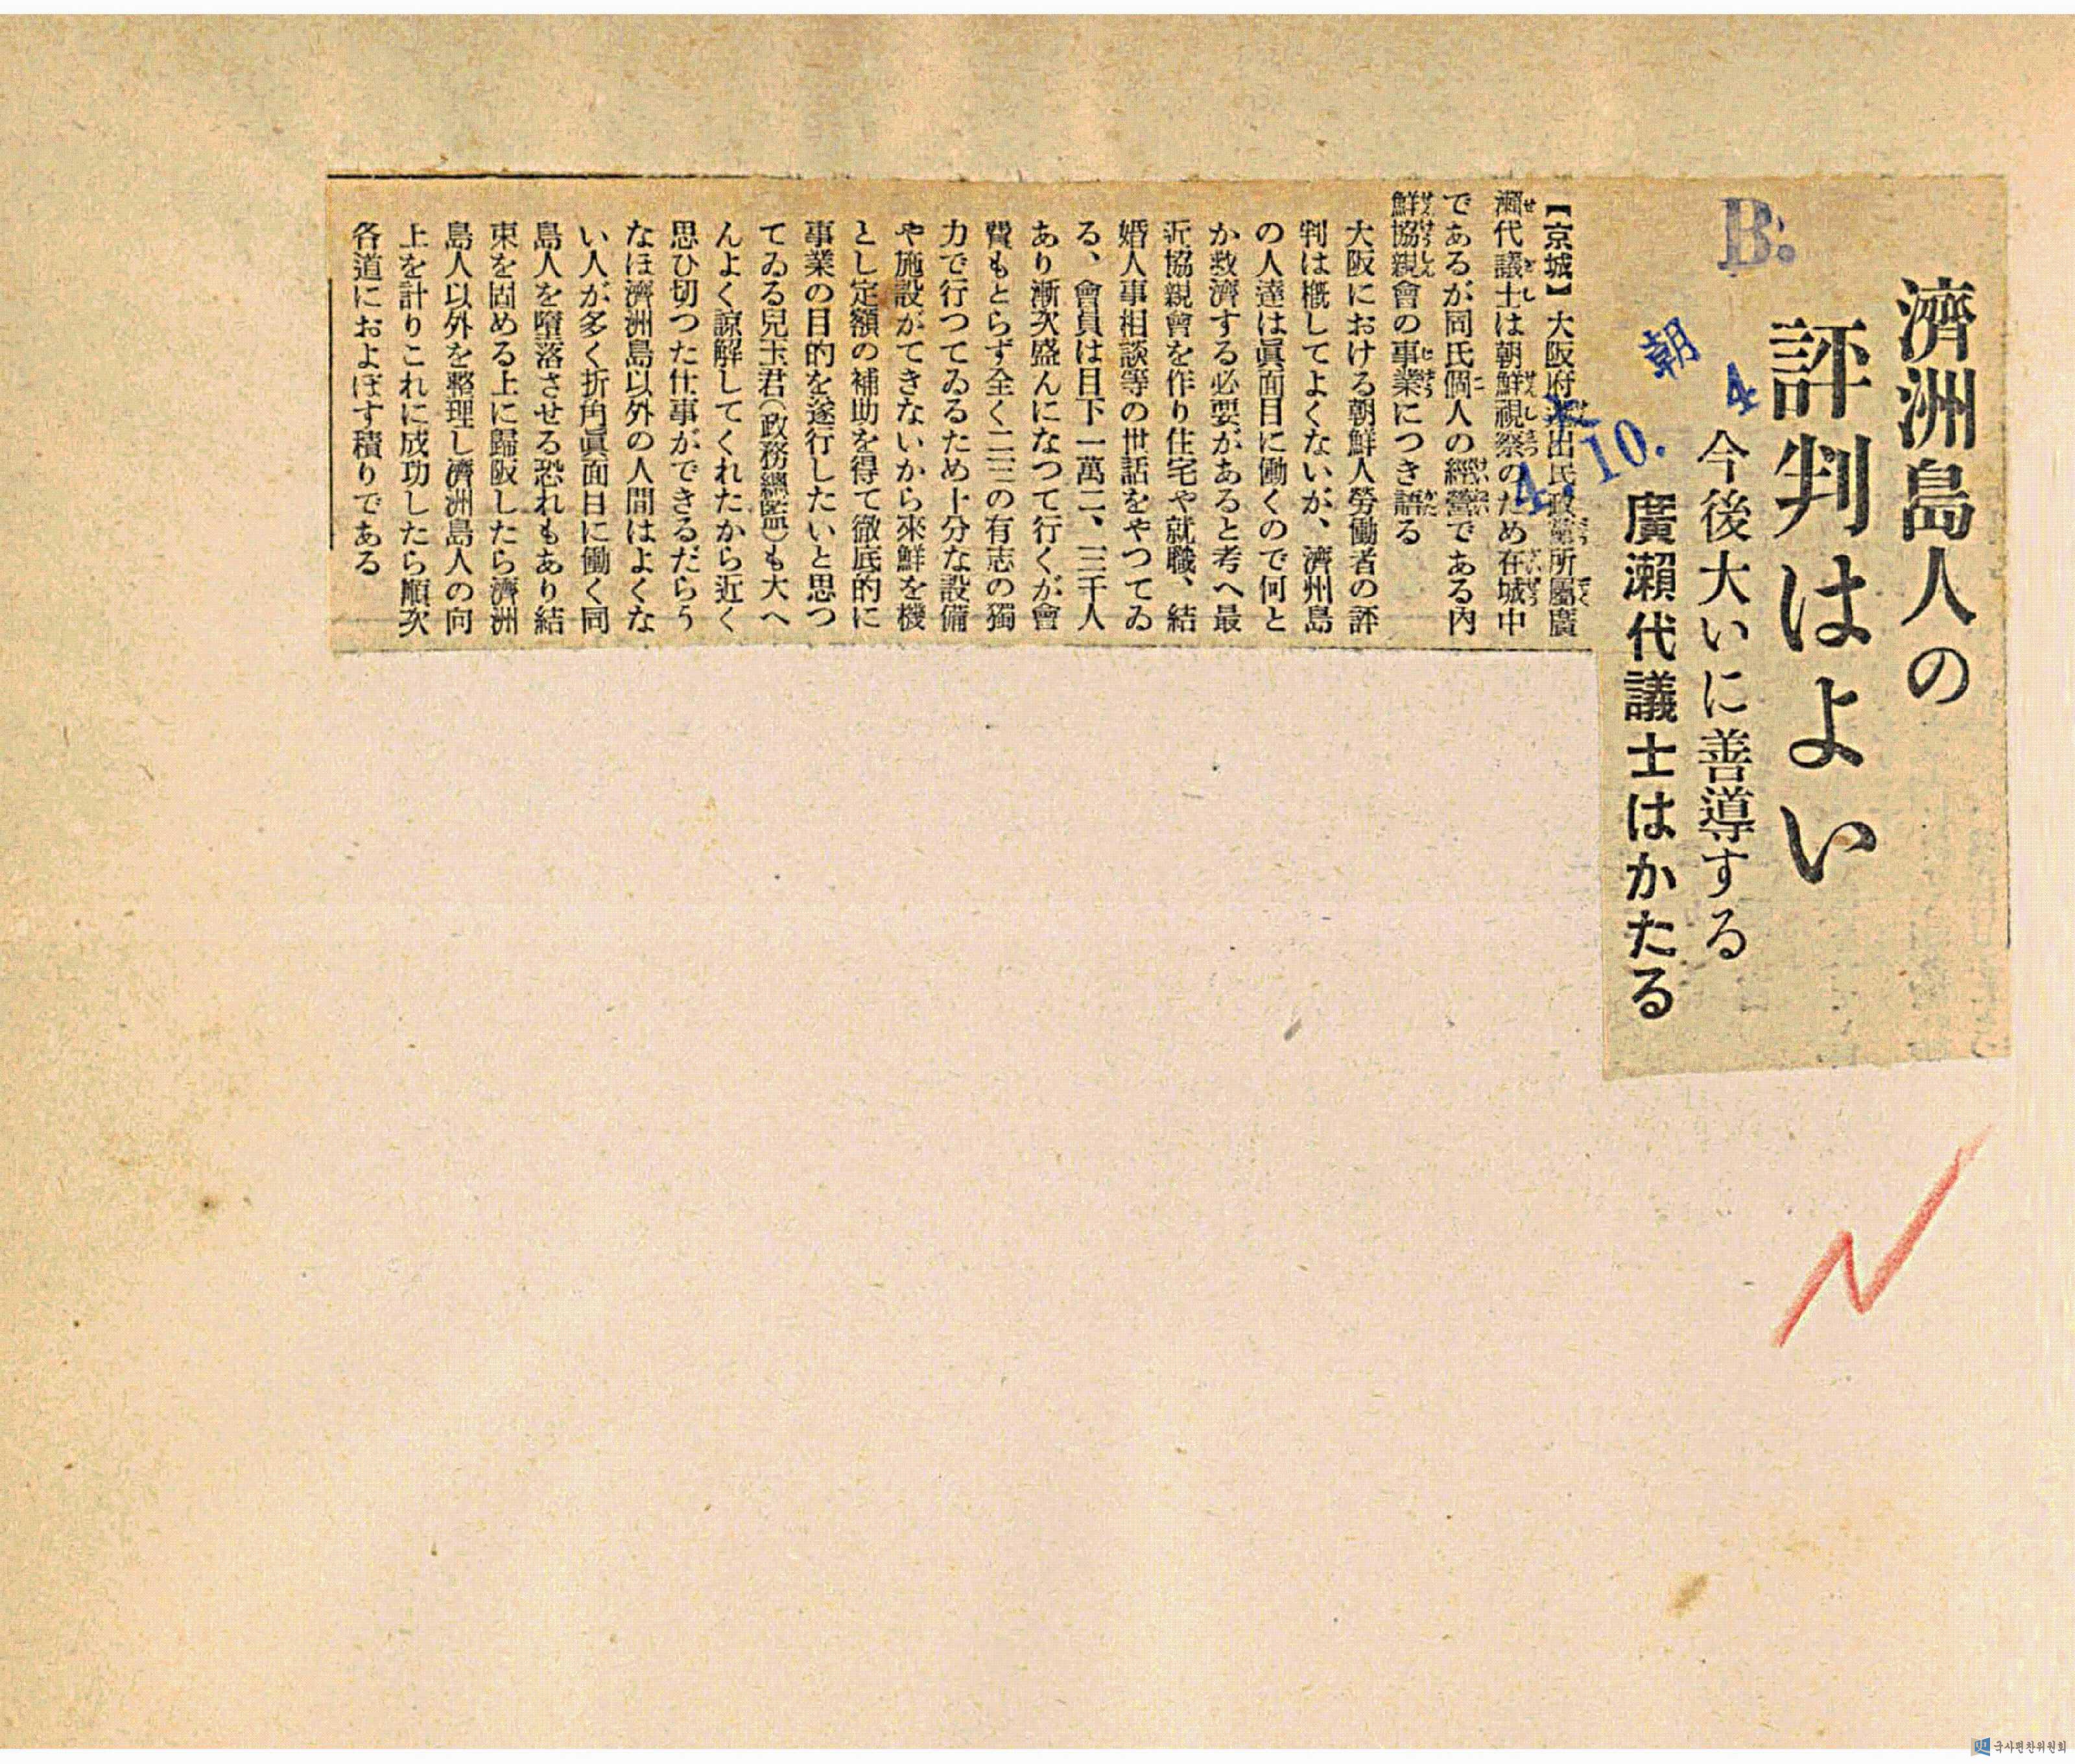 濟洲島人の
評判はよい
今後大いに善導する
廣瀨代議士はかたる
B.
朝
4
4.10.
【京城】大阪府選出民政黨所屬廣
瀨代議士は朝鮮視察のため在城中
であるが同氏個人の經營である内
鮮協親會の事業につき語る
大阪における朝鮮人勞働者の評
判は概してよくないが、濟州島
の人達は眞面目に働くので何と
か救濟する必要があると考へ最
近協親會を作り住宅や就職、結
婚人事相談等の世話をやつてゐ
る、會員は目下一萬二、三千人
あり漸次盛んになつて行くが會
費もとらず全く二三の有志の獨
力で行つてゐるため十分な設備
や施設ができないから來鮮を機
とし定額の補助を得て徹底的に
事業の目的を遂行したいと思つ
てゐる兒玉君(政務總監)も大へ
んよく諒解してくれたから近く
思ひ切つた仕事ができるだらう
なほ濟洲島以外の人間はよくな
い人が多く折角眞面目に働く同
島人を墮落させる恐れもあり結
束を固める上に歸阪したら濟洲
島人以外を整理し濟洲島人の向
上を計りこれに成功したら順次
各道におよぼす積りである
국사편찬위원회